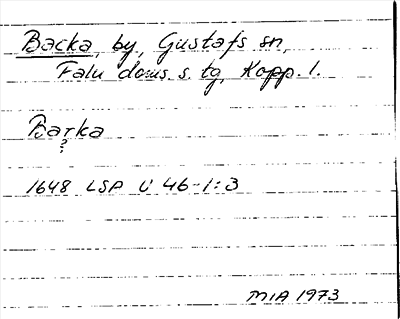 Backa, by, Gustafs sn,
Falu doms. s. tg, Kopp. l.
Barka
?
1648 LSA U 46-1:3
MIA 1973